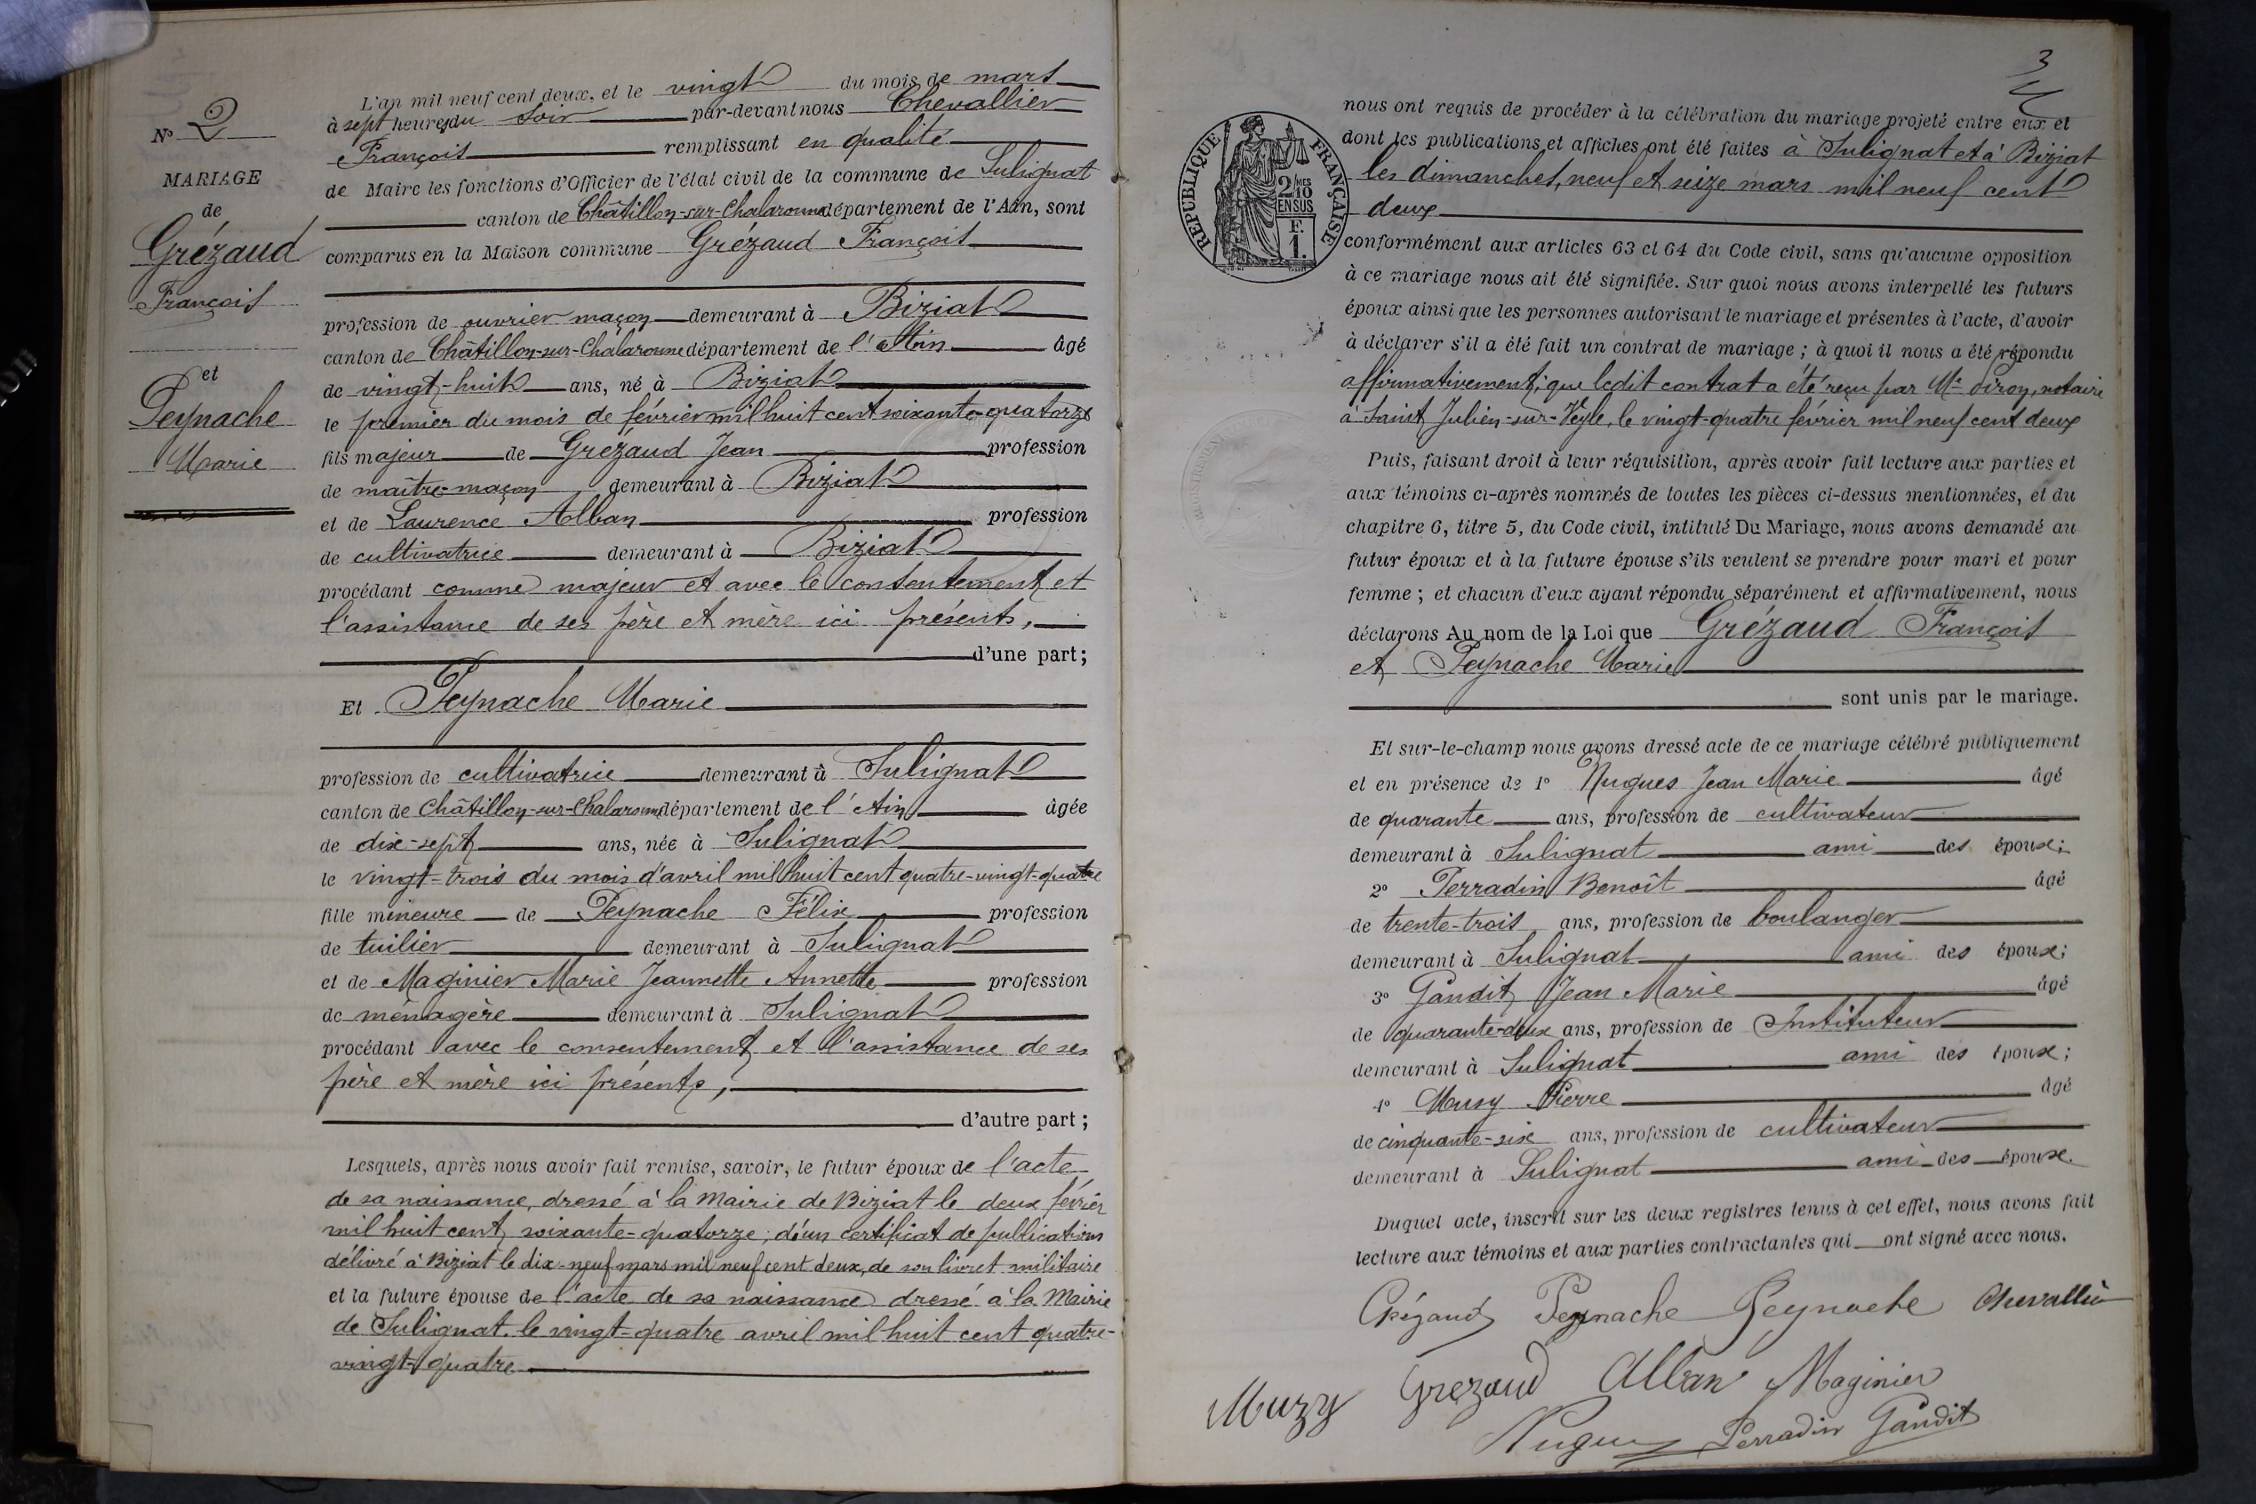 N° 2
MARIAGE
de
Grézaud
François
et
Peynache
Marie
L'an mil neuf cent deux, et le vingt du mois de mars
à sept heures du soir par-devant nous Chevallier
François remplissant en qualité
de Maire les fonctions d'Officier de l'état civil de la commune de Sulignat
canton de Châtillon-sur-Chalaronne département de l'Ain, sont
comparus en la Maison commune Grézaud François
profession de ouvrier maçon demeurant à Biziat
canton de Châtillon-sur-Chalaronne département de l'Ain âgé
de vingt-huit ans, né à Biziat
le premier du mois de février mil huit cent soixante-quatorze
fils majeur de Grézaud Jean profession
de maître-maçon demeurant à Biziat
et de Laurence Alban profession
de cultivatrice demeurant à Biziat
procédant comme majeur et avec le consentement et
l'assistance de ses père et mère ici présents,
d'une part;
Et Peynache Marie
profession de cultivatrice demeurant à Sulignat
canton de Châtillon-sur-Chalaronne département de l'Ain âgée
de dix-sept ans, née à Sulignat
le vingt-trois du mois d'avril mil huit cent quatre-vingt-quatre
fille mineure de Peynache Félix profession
de tuilier demeurant à Sulignat
et de Maginier Marie Jeannette Annette profession
de ménagère demeurant à Sulignat
procédant avec le consentement et l'assistance de ses
père et mère ici présents,
d'autre part;
Lesquels, après nous avoir fait remise, savoir, le futur époux de l'acte
de sa naissance, dressé à la Mairie de Biziat le deux février
mil huit cent soixante-quatorze; d'un certificat de publications
délivré à Biziat le dix-neuf mars mil neuf cent deux, de son livret militaire
et la future épouse de l'acte de sa naissance dressé à la Mairie
de Sulignat le vingt-quatre avril mil huit cent quatre-
vingt-quatre
3
RÉPUBLIQUE FRANÇAISE
2 MES
10
EN SUS
F.
1.
nous ont requis de procéder à la célébration du mariage projeté entre eux et
dont les publications et affiches ont été faites à Sulignat et à Biziat
les dimanches, neuf et seize mars mil neuf cent
deux
conformément aux articles 63 et 64 du Code civil, sans qu'aucune opposition
à ce mariage nous ait été signifiée. Sur quoi nous avons interpellé les futurs
époux ainsi que les personnes autorisant le mariage et présentes à l'acte, d'avoir
à déclarer s'il a été fait un contrat de mariage; à quoi il nous a été répondu
affirmativement, que ledit contrat a été reçu par Me notaire
à Saint Julien-sur-Veyle, le vingt-quatre février mil neuf cent deux
Puis, faisant droit à leur réquisition, après avoir fait lecture aux parties et
aux témoins ci-après nommés de toutes les pièces ci-dessus mentionnées, et du
chapitre 6, titre 5, du Code civil, intitulé Du Mariage, nous avons demandé au
futur époux et à la future épouse s'ils veulent se prendre pour mari et pour
femme; et chacun d'eux ayant répondu séparément et affirmativement, nous
déclarons Au nom de la Loi que Grézaud François
et Peynache Marie
sont unis par le mariage.
Et sur-le-champ nous avons dressé acte de ce mariage célébré publiquement
et en présence de 1° Nugues Jean Marie âgé
de quarante ans, profession de cultivateur
demeurant à Sulignat ami des époux;
2° Perradin Benoît âgé
de trente-trois ans, profession de boulanger
demeurant à Sulignat ami des époux;
3° Gandit Jean Marie âgé
de quarante-deux ans, profession de Instituteur
demeurant à Sulignat ami des époux;
4° Musy Pierre âgé
de cinquante-six ans, profession de cultivateur
demeurant à Sulignat ami des époux.
Duquel acte, inscrit sur les deux registres tenus à cet effet, nous avons fait
lecture aux témoins et aux parties contractantes qui ont signé avec nous.
Grézaud Peynache Peynache Chevallier
Muzy Grezaud Alban Maginier
Nugues Perradin Gandit